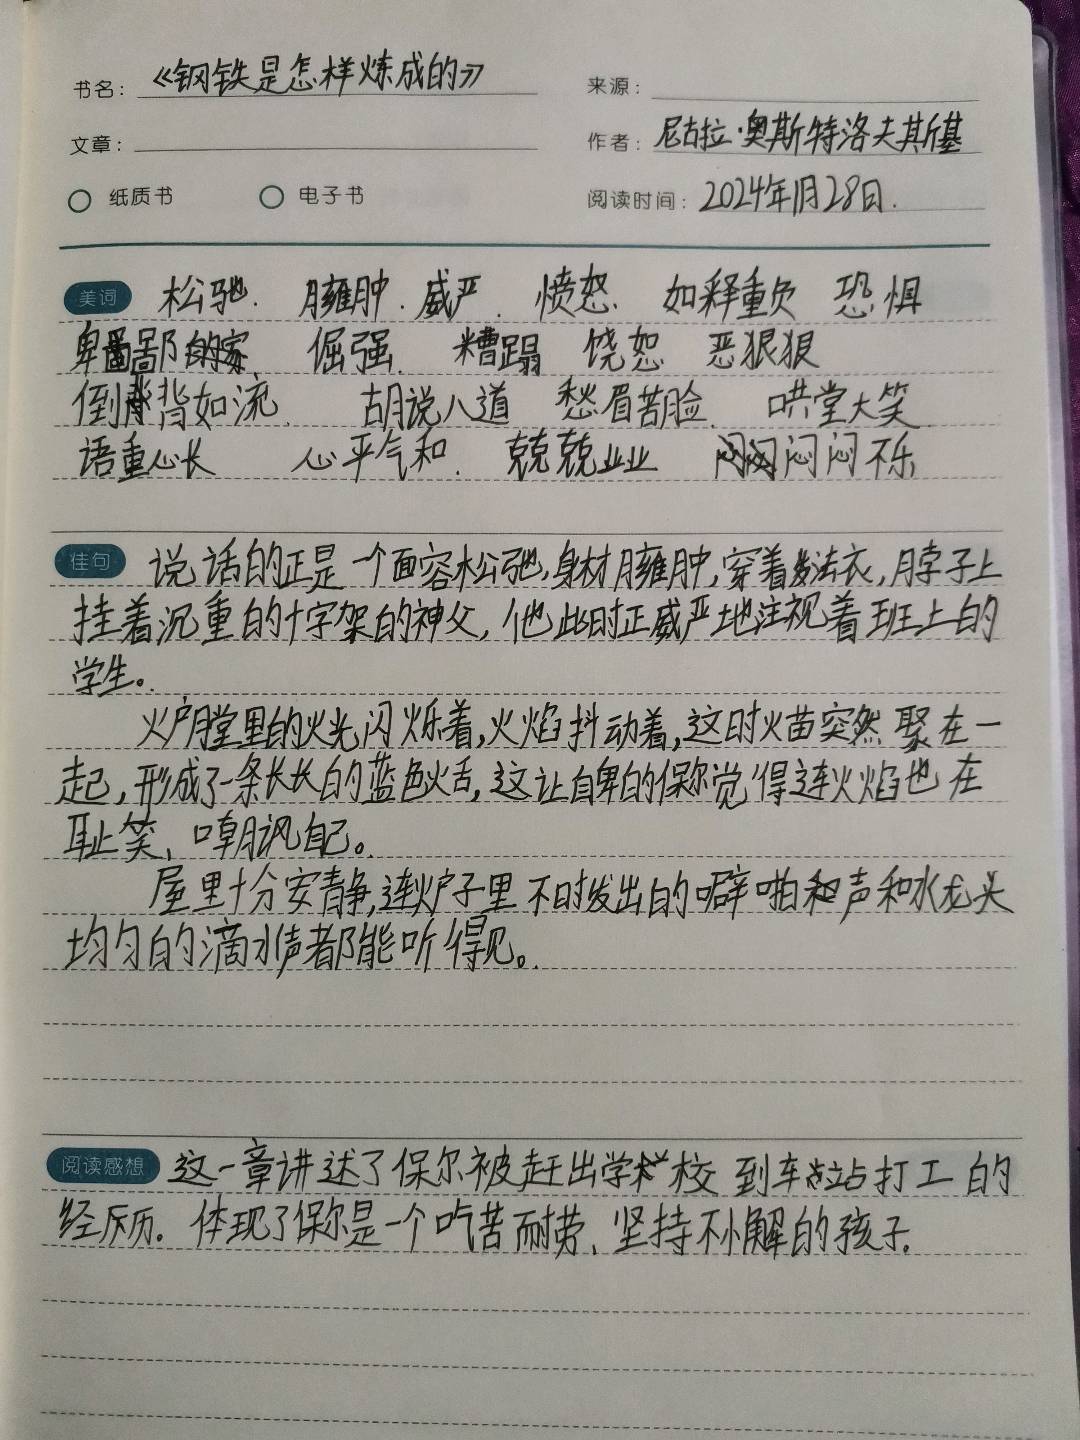 书名：《钢铁是怎样炼成的》 来源：
文章： 作者：尼古拉·奥斯特洛夫斯基
纸质书 电子书 阅读时间：2024年1月28日.
美词 松驰. 臃肿. 威严. 愤怒. 如释重负 恐惧
卑鄙 倔强. 糟蹋 饶恕 恶狠狠
倒背如流. 胡说八道 愁眉苦脸. 哄堂大笑
语重心长 心平气和. 兢兢业业 闷闷不乐
佳句 说话的正是一个面容松弛,身材臃肿,穿着法衣,脖子上
挂着沉重的十字架的神父,他此时正威严地注视着班上的
学生。
火炉膛里的火光闪烁着,火焰抖动着,这时火苗突然聚在一
起,形成了一条长长的蓝色火舌,这让自卑的保尔觉得连火焰也在
耻笑、嘲讽自己。
屋里十分安静,连炉子里不时发出的噼啪声和水龙头
均匀的滴水声都能听得见。
阅读感想 这一章讲述了保尔被赶出学校到车站打工的
经历。体现了保尔是一个吃苦耐劳、坚持不懈的孩子.